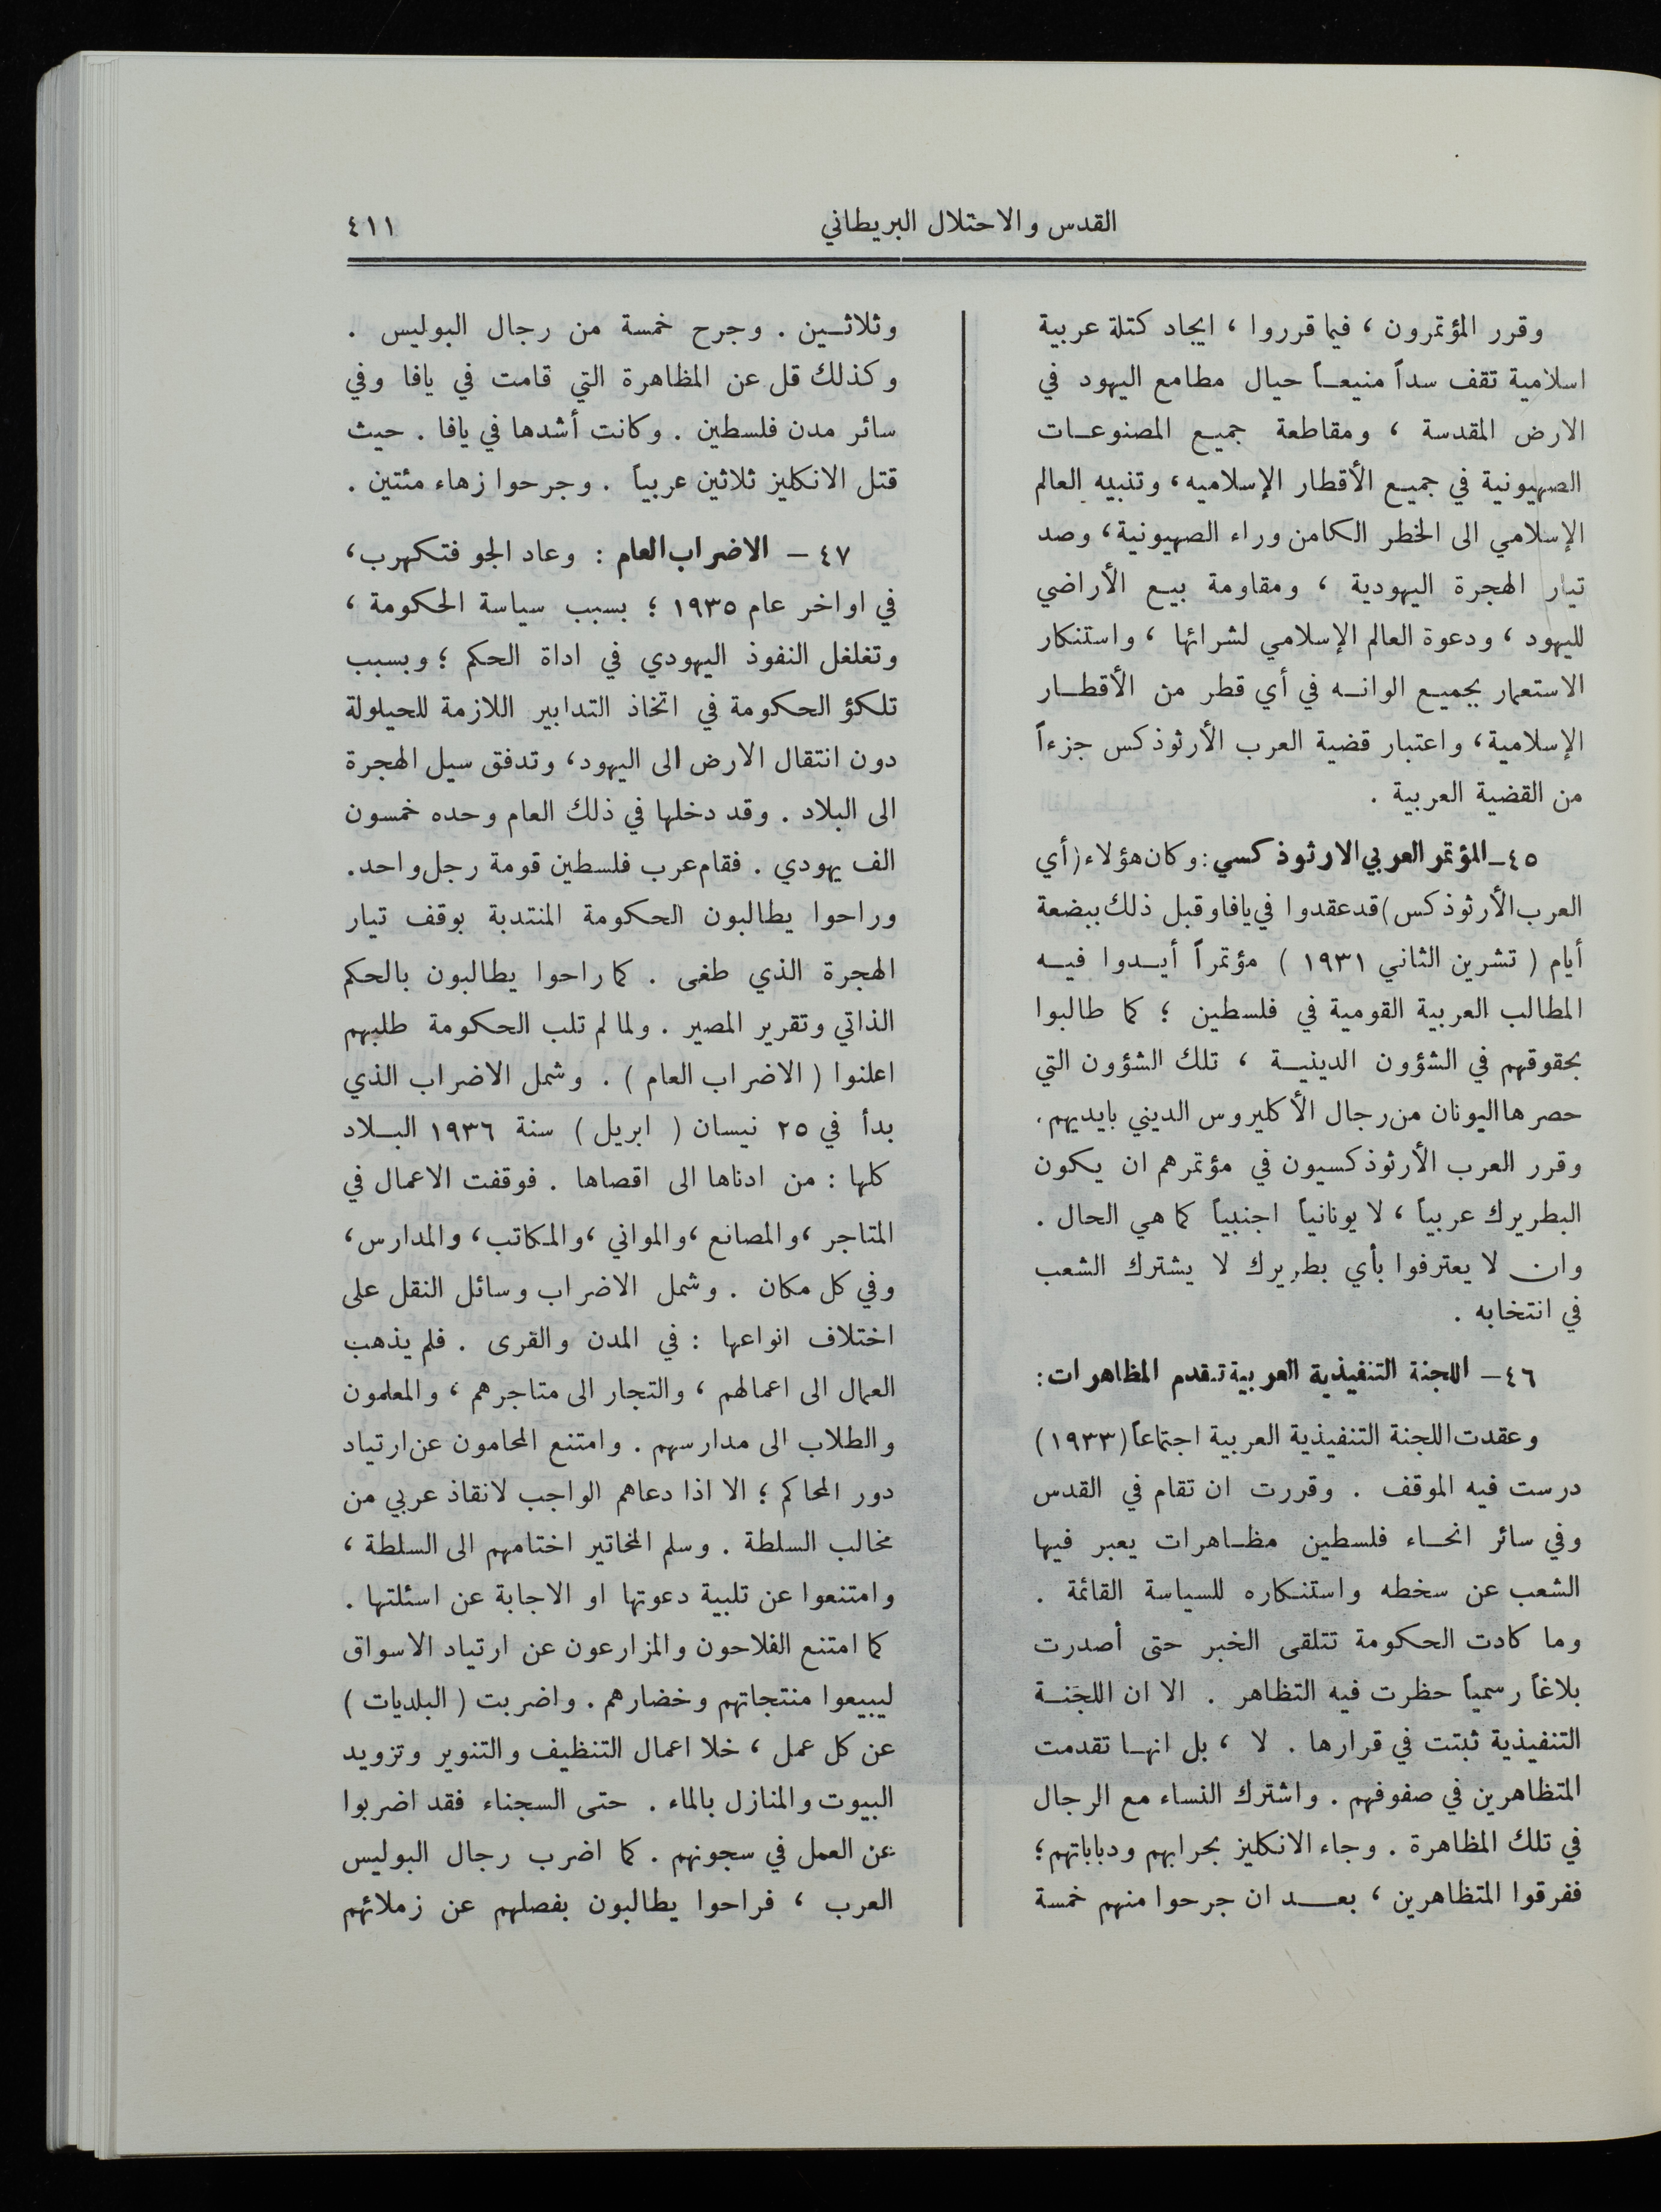 القدس والاحتلال البريطاني
٤١١
وقرر المؤتمرون ، فيما قرروا ، ايجاد كتلة عربية
اسلامية تقف سداً منيعاً حيال مطامع اليهود في
الارض المقدسة ، ومقاطعة جميع المصنوعات
الصهيونية في جميع الأقطار الإسلاميه ، وتنبيه العالم
الإسلامي الى الخطر الكامن وراء الصهيونية ، وصد
تيار الهجرة اليهودية ، ومقاومة بيع الأراضي
لليهود ، ودعوة العالم الإسلامي لشرائها ، واستنكار
الاستعمار بجميع الوانه في أي قطر من الأقطار
الإسلامية ، واعتبار قضية العرب الأرثوذكس جزءاً
من القضية العربية .
٤٥ – المؤتمر العربي الارثوذكسي : وكان هؤلاء ( أي
العرب الأرثوذكس ) قد عقدوا في يافا وقبل ذلك ببضعة
أيام ( تشرين الثاني ١٩٣١ ) مؤتمراً أيدوا فيه
المطالب العربية القومية في فلسطين ؛ كما طالبوا
بحقوقهم في الشؤون الدينية ، تلك الشؤون التي
حصرها اليونان من رجال الأكليروس الديني بايديهم .
وقرر العرب الأرثوذكسيون في مؤتمرهم ان يكون
البطريرك عربياً ، لا يونانياً اجنبياً كما هي الحال .
وان لا يعترفوا بأي بطريرك لا يشترك الشعب
في انتخابه .
٤٦ – اللجنة التنفيذية العربية تتقدم المظاهرات :
وعقدت اللجنة التنفيذية العربية اجتماعاً (١٩٣٣)
درست فيه الموقف . وقررت ان تقام في القدس
وفي سائر انحاء فلسطين مظاهرات يعبر فيها
الشعب عن سخطه واستنكاره للسياسة القائمة .
وما كادت الحكومة تتلقى الخبر حتى أصدرت
بلاغاً رسمياً حظرت فيه التظاهر . الا ان اللجنة
التنفيذية ثبتت في قرارها . لا ، بل انها تقدمت
المتظاهرين في صفوفهم . واشترك النساء مع الرجال
في تلك المظاهرة . وجاء الانكليز بحرابهم ودباباتهم ؛
ففرقوا المتظاهرين ، بعد ان جرحوا منهم خمسة
وثلاثين . وجرح خمسة من رجال البوليس .
وكذلك قل عن المظاهرة التي قامت في يافا وفي
سائر مدن فلسطين . وكانت أشدها في يافا . حيث
قتل الانكليز ثلاثين عربياً . وجرحوا زهاء مئتين .
٤٧ – الاضراب العام : وعاد الجو فتكهرب ،
في اواخر عام ١٩٣٥ ؛ بسبب سياسة الحكومة ،
وتغلغل النفوذ اليهودي في اداة الحكم ؛ وبسبب
تلكؤ الحكومة في اتخاذ التدابير اللازمة للحيلولة
دون انتقال الارض الى اليهود ، وتدفق سيل الهجرة
الى البلاد . وقد دخلها في ذلك العام وحده خمسون
الف يهودي . فقام عرب فلسطين قومة رجل واحد .
وراحوا يطالبون الحكومة المنتدبة بوقف تيار
الهجرة الذي طغى . كما راحوا يطالبون بالحكم
الذاتي وتقرير المصير . ولما لم تلب الحكومة طلبهم
اعلنوا ( الاضراب العام ) . وشمل الاضراب الذي
بدأ في ٢٥ نيسان ( ابريل ) سنة ١٩٣٦ البلاد
كلها : من ادناها الى اقصاها . فوقفت الاعمال في
المتاجر ، والمصانع ، والمواني ، والمكاتب ، والمدارس ،
وفي كل مكان . وشمل الاضراب وسائل النقل على
اختلاف انواعها : في المدن والقرى . فلم يذهب
العمال الى اعمالهم ، والتجار الى متاجرهم ، والمعلمون
والطلاب الى مدارسهم . وامتنع المحامون عن ارتياد
دور المحاكم ؛ الا اذا دعاهم الواجب لانقاذ عربي من
مخالب السلطة . وسلم المخاتير اختامهم الى السلطة ،
وامتنعوا عن تلبية دعوتها او الاجابة عن اسئلتها .
كما امتنع الفلاحون والمزارعون عن ارتياد الاسواق
ليبيعوا منتجاتهم وخضارهم . واضربت ( البلديات )
عن كل عمل ، خلا اعمال التنظيف والتنوير وتزويد
البيوت والمنازل بالماء . حتى السجناء فقد اضربوا
عن العمل في سجونهم . كما اضرب رجال البوليس
العرب ، فراحوا يطالبون بفصلهم عن زملائهم